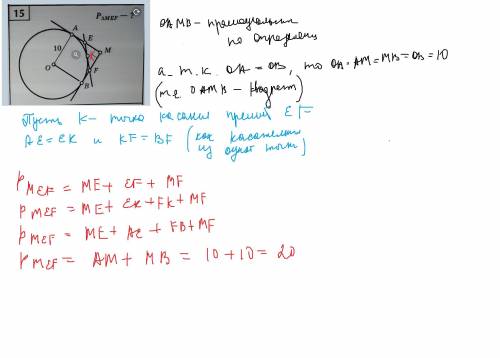 15
P△MEF — ?
A
E
10
M
K
O
F
B
OAMB — прямоугольник
по определен
а т.к. OA = OB, то OA = AM = MB = OB = 10
(т.е OAMB — квадрат)
Пусть K — точка касания прямой EF
AE = EK и KF = BF (как касательные
из одной точки)
PMEF = ME + EF + MF
PMEF = ME + EK + FK + MF
PMEF = ME + AE + FB + MF
PMEF = AM + MB = 10 + 10 = 20